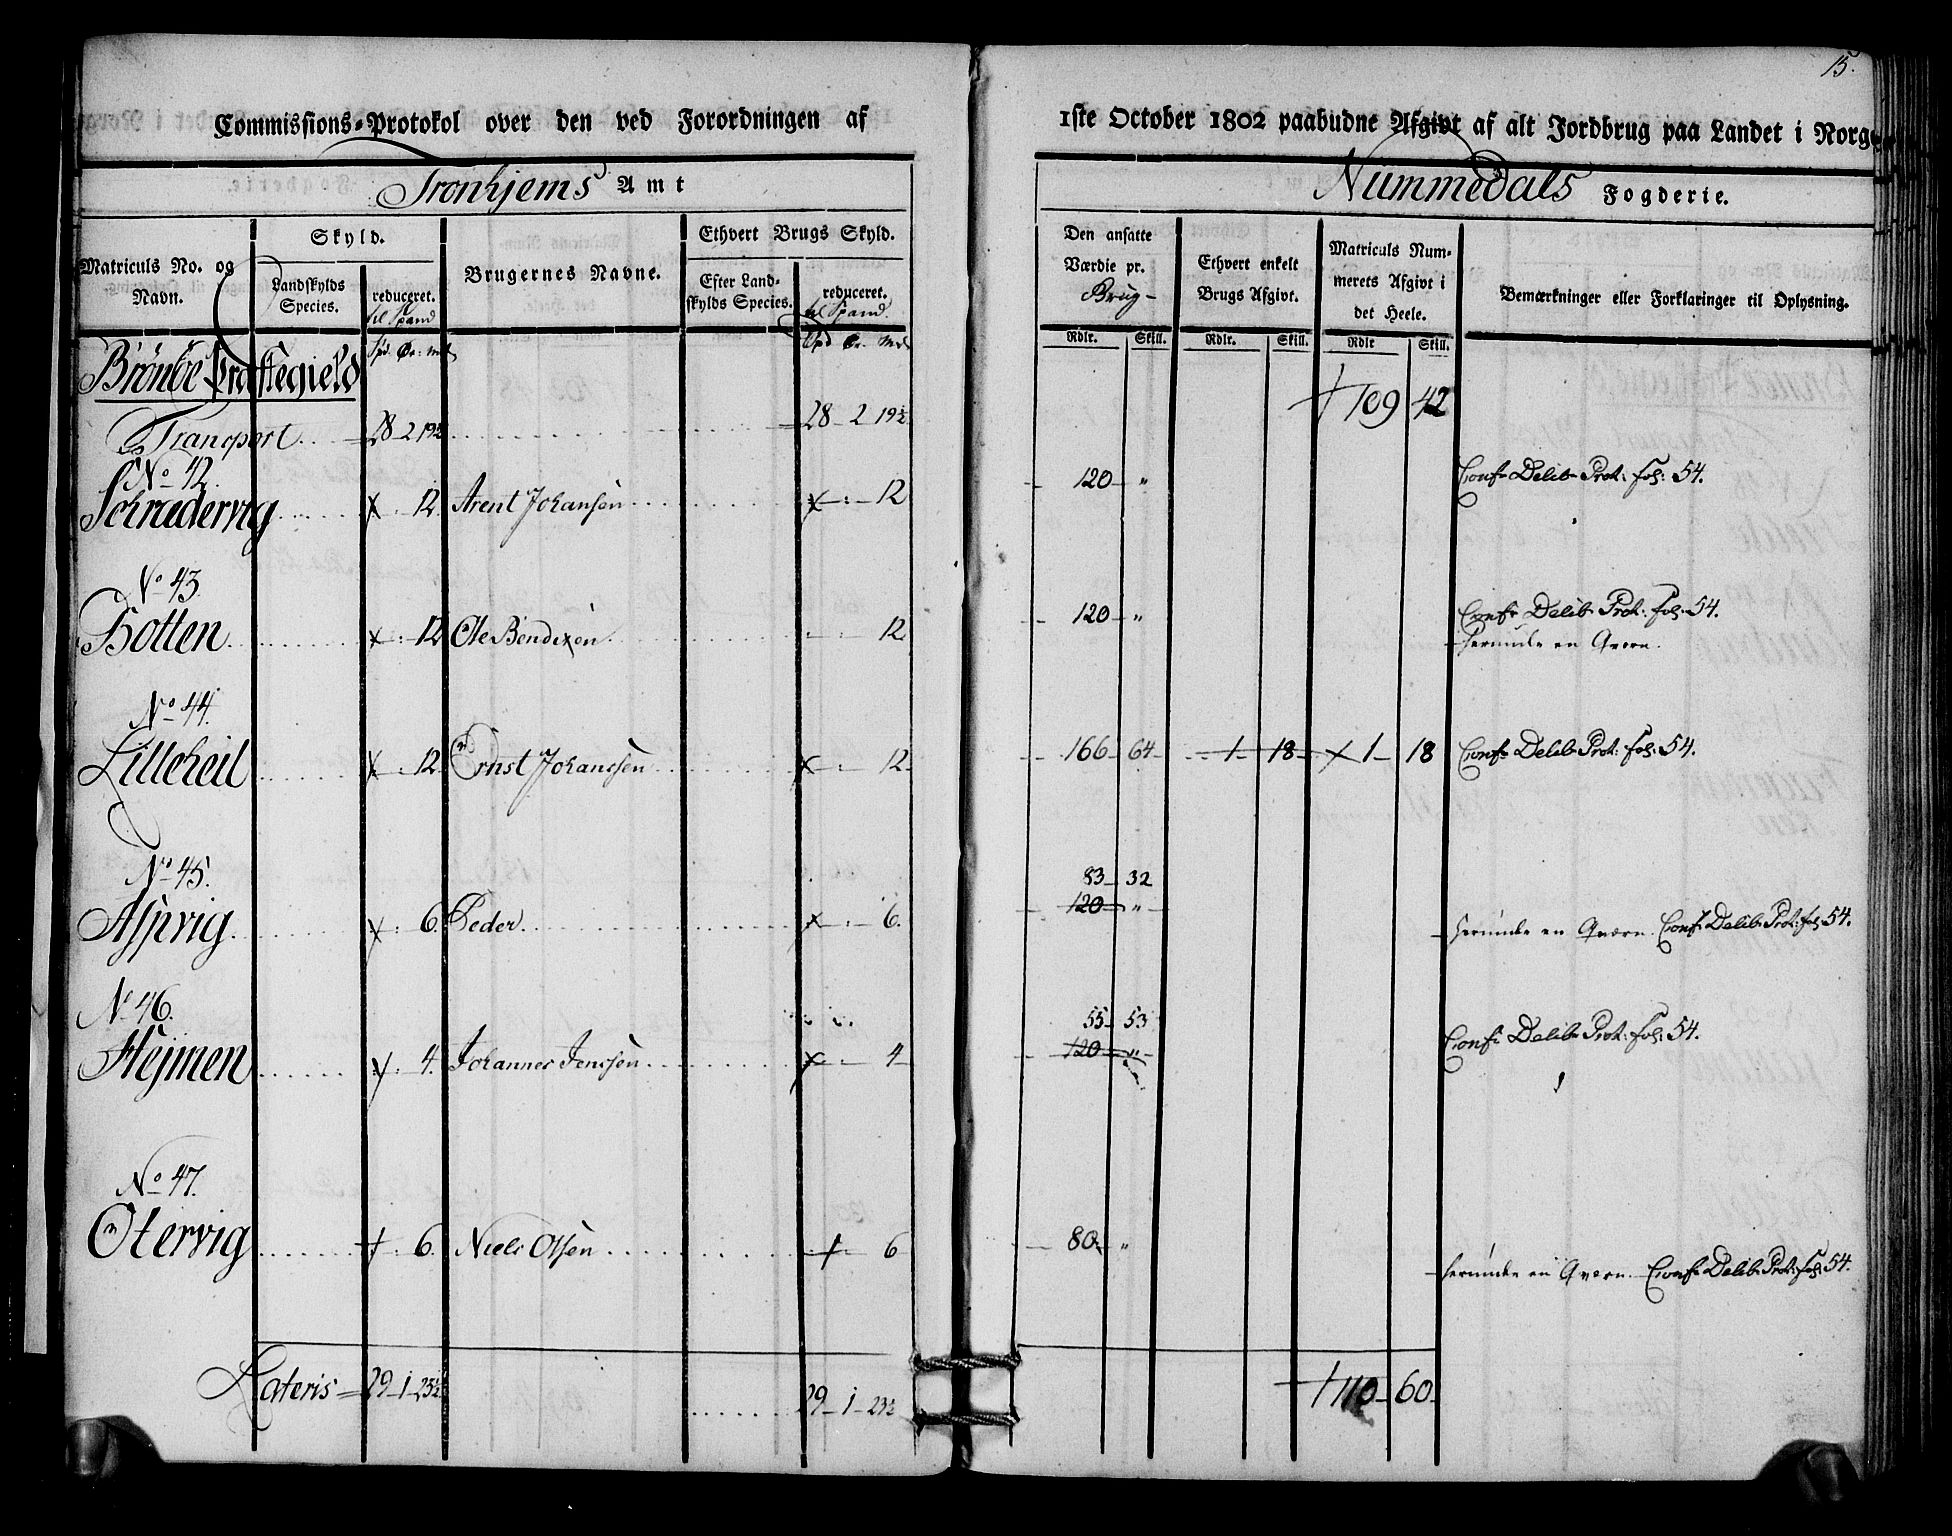 15.
Commissions-Protokol over den ved Forordningen af 1ste October 1802 paabudne Afgivt af alt Jordbrug paa Landet i Norge
Tronhjems Amt
Nummedals Fogderie.
Matriculs No. og Navn.
Skyld.
Landskylds Species.
reduceret.
til Spand
Brugernes Navne.
Ethvert Brugs Skyld.
Efter Landskylds Species.
reduceret.
til Spand
Den ansatte Værdie pr. Brug-
Ethvert enkelt Brugs Afgivt.
Matriculs Nummerets Afgivt i det Heele.
Bemærkninger eller Forklaringer til Oplysning.
Rdlr. Skill. Rdlr. Skill. Rdlr Skill.
Spd. Ør: mk
Spd Ør. mk
Brönöe Præstegield
Transport 28-2 19½ 28-2 19½ 109 42
No 42.
Schrudervig 12. Arent Johansen 12 120 " Conf: Delib. Prot: fol: 54.
No 43.
Botten 12 Ole Bendixen 12 120 " Conf: Delib. Prot: fol: 54.
herunder en Qvern.
No 44.
Lilleheil 12. Ernst Johanssen 12 166 64 1 18 1 18 Conf: Delib. Prot: fol: 54.
No 45.
83 32
Aspvig 6. Peder 6. 120 " herunder en Qvern. Conf: Delib. Prot: fol 54.
No 46.
55 53
Hejmen 4. Johannes Jenssen 4 120 " Conf: Delib. Prot: fol: 54.
No 47.
Otervig 6. Niels Olsen 6 80 " herunder en Qvern. Conf: Delib. Prot: fol: 54.
Lateris 29-1-23½ 29-1-23½ 110 60